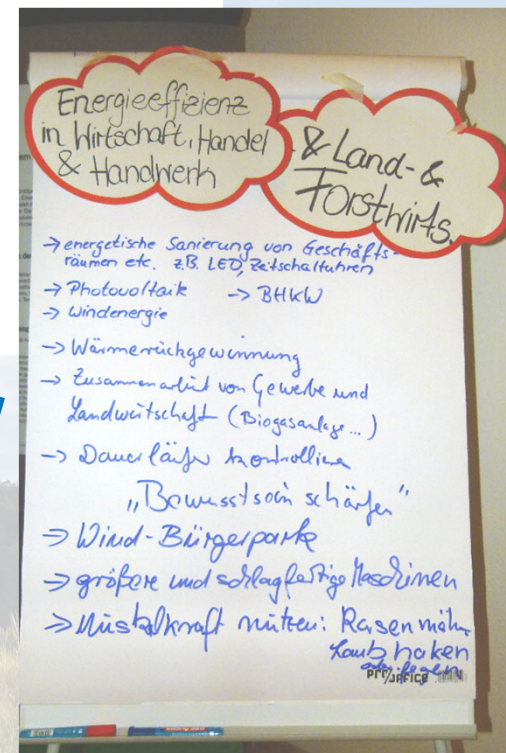 Energieeffizienz
in Wirtschaft, Handel
& Handwerk
& Land- &
Forstwirts.
→ energetische Sanierung von Geschäfts-
räumen etc. z.B. LED, Zeitschaltuhren
→ Photovoltaik → BHKW
→ Windenergie
→ Wärmerückgewinnung
→ Zusammenarbeit von Gewerbe und
Landwirtschaft (Biogasanlage...)
→ Dauerläufer kontrollieren
„Bewusstsein schärfen"
→ Wind-Bürgerparke
→ größere und schlagfertige Maschinen
→ Muskelkraft nutzen: Rasenmäher
Laub haken
oder fegen